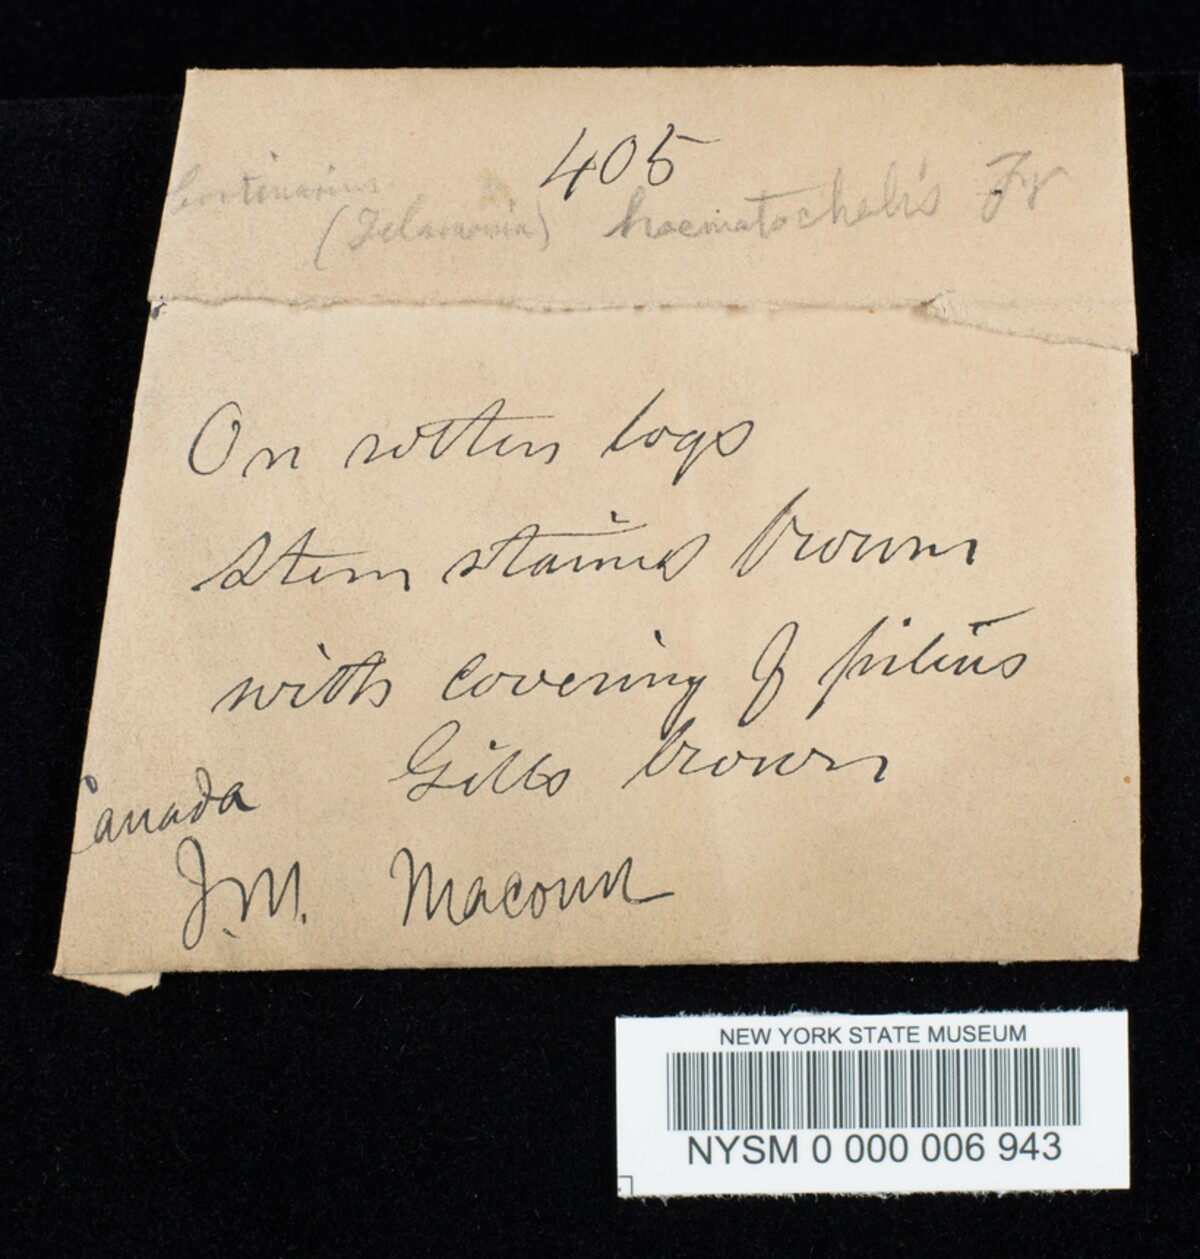 405
Cortinarius
(Telamonia) haematochelis Fr
On rotten logs
Stem stained brown
with covering of pileus
Gills brown
Canada
J. M. Macoun
NEW YORK STATE MUSEUM
NYSM 0 000 006 943